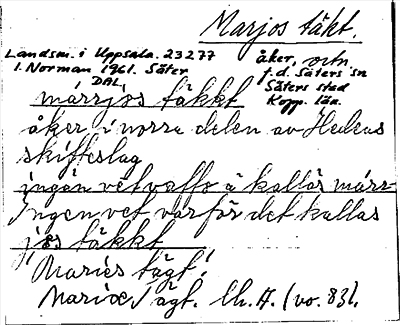 Marjos täkt.
Landsm. i Uppsala. 23277
I. Norman 1961. Säter
DAL.
åker, och
f.d. Säters sn
Säters stad
Kopp. län.
márrjós täkkt
åker i norra delen av Hedens
skifteslag
ingän vet vaffo ä kallas márr-
Ingen vet varför det kallas
jös täkkt
Mariés tägt!
Mariæ ägt. lh. A. (vo. 83).